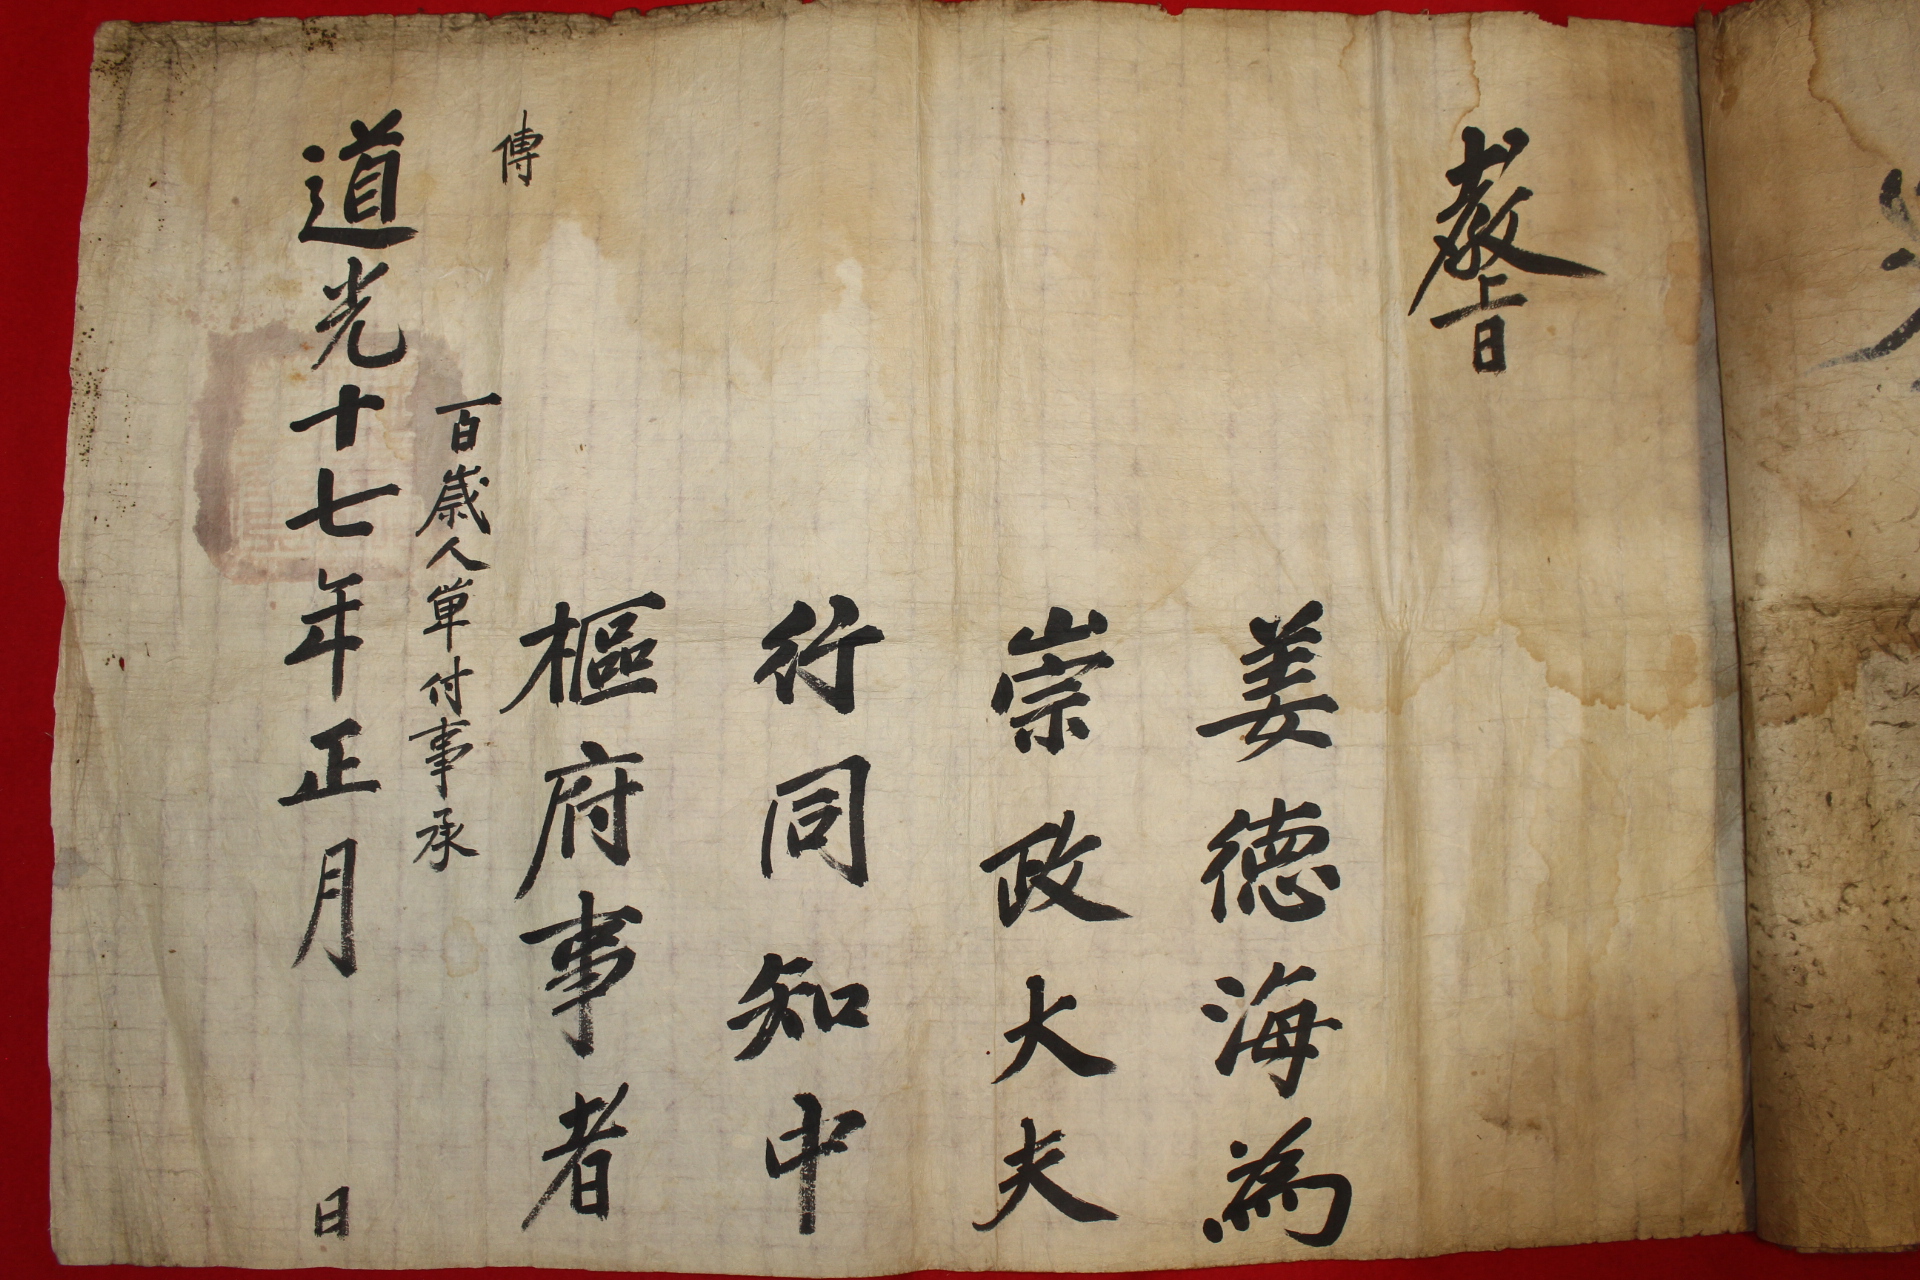 敎旨
姜德海為
崇政大夫
行同知中
樞府事者
道光十七年正月　日
百歲人單付事承
傳